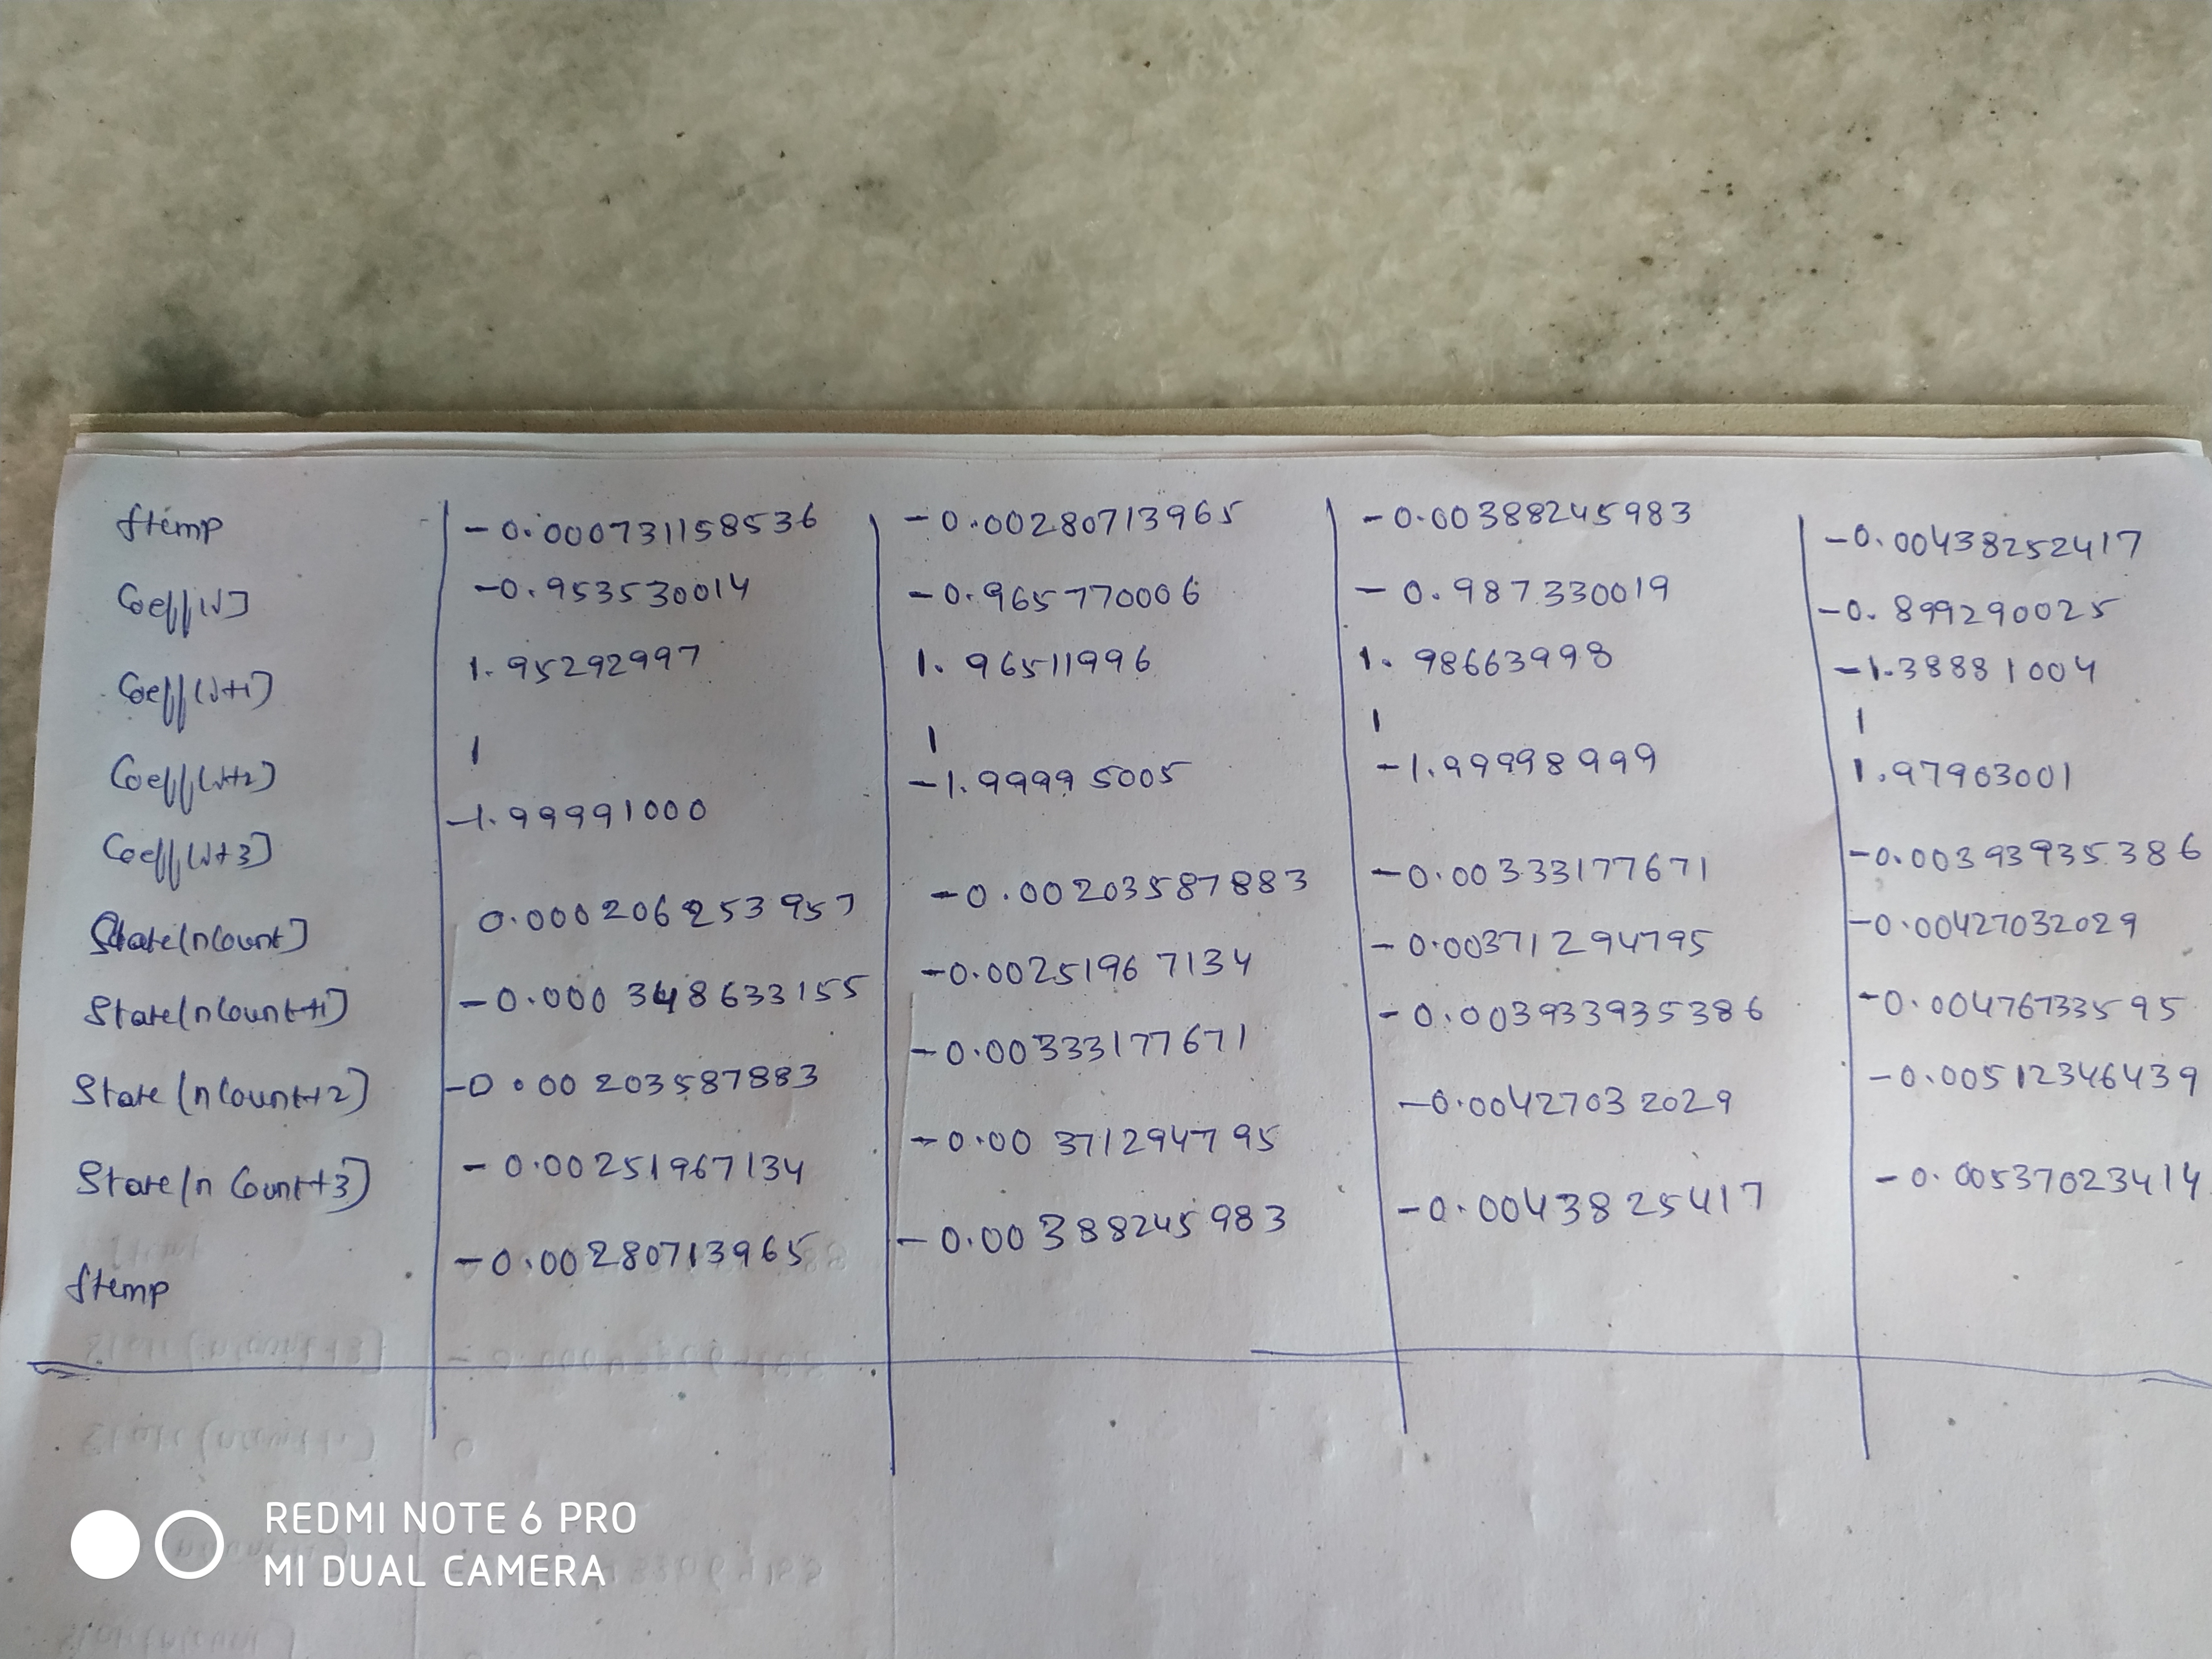 ftemp -0.000731158536 -0.00280713965 -0.00388245983 -0.00438252417
Coeff[J] -0.953530014 -0.965770006 -0.987330019 -0.899290025
Coeff[J+1] 1.95292997 1.96511996 1.98663998 -1.38881004
Coeff[J+2] 1 1 1 1
Coeff[J+3] -1.99991000 -1.99995005 -1.99998999 1.97903001
State[nCount] 0.000206253957 -0.00203587883 -0.00333177671 -0.00393935386
State[nCount+1] -0.000348633155 -0.00251967134 -0.00371294795 -0.00427032029
State[nCount+2] -0.00203587883 -0.00333177671 -0.003933935386 -0.00476733595
State[nCount+3] -0.00251967134 -0.00371294795 -0.00427032029 -0.00512346439
ftemp -0.00280713965 -0.00388245983 -0.0043825417 -0.00537023414
REDMI NOTE 6 PRO
MI DUAL CAMERA